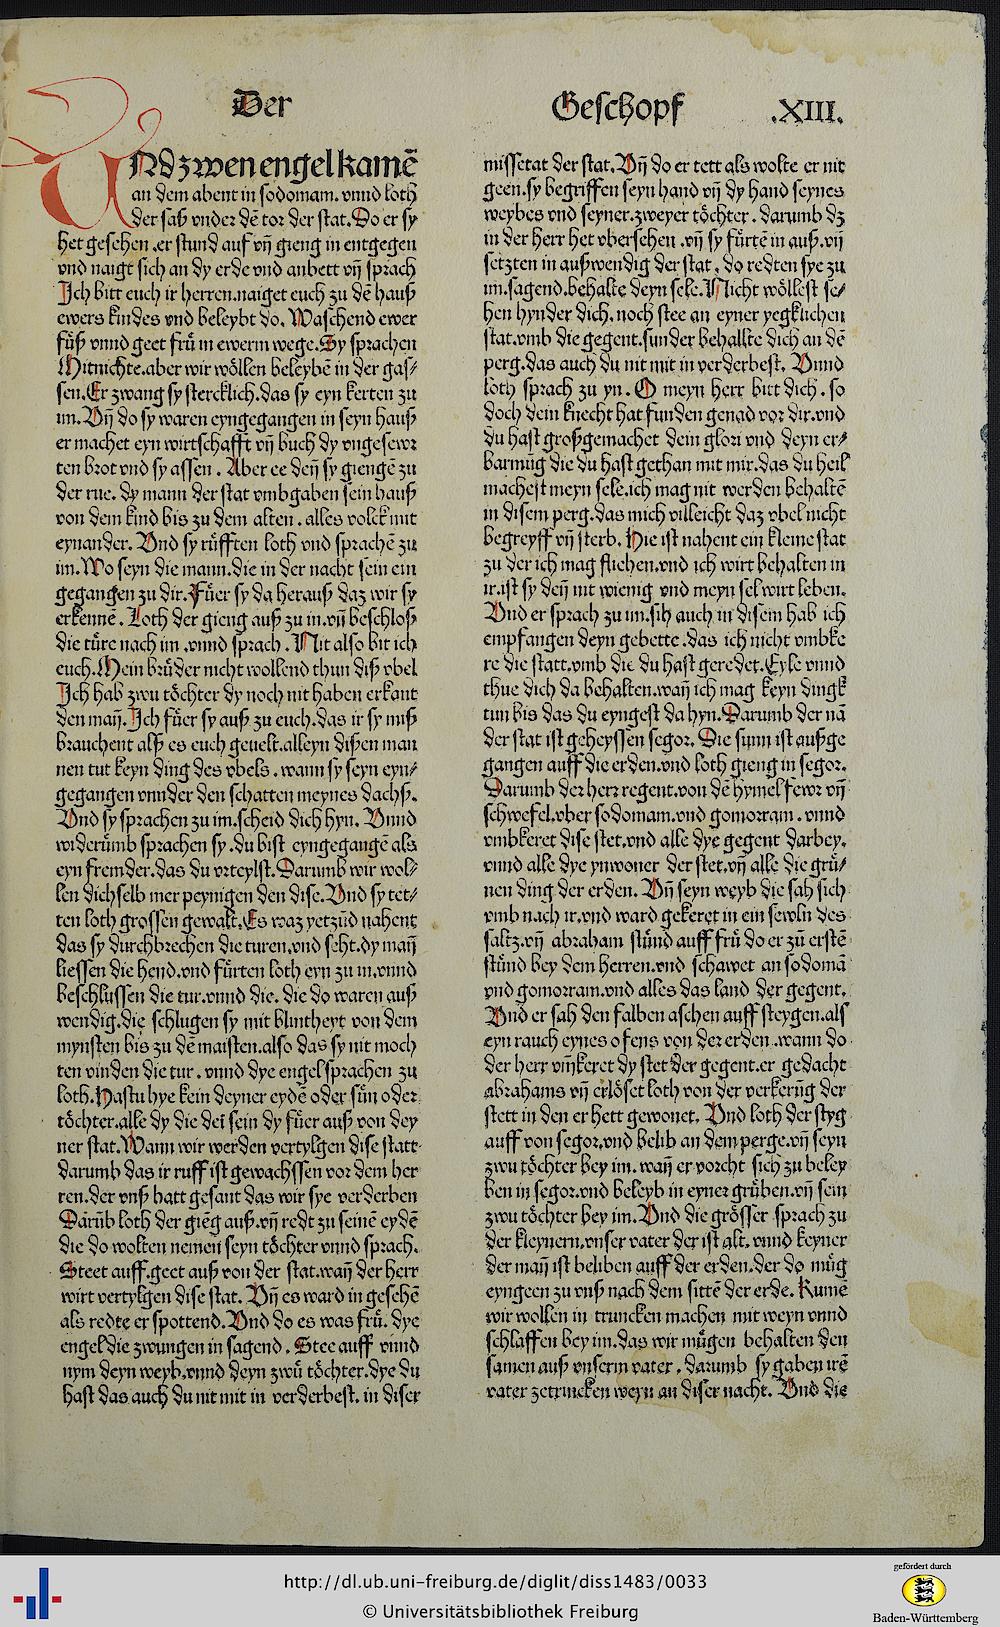 Der
Geschopf .XIII.
VNd zwen engel kamē
an dem abent in sodomam. vnnd loth
der saß vnder dē tor der stat. Do er sy
het gesehen .er stund auf vñ gieng in entgegen
vnd naigt sich an dy erde vnd anbett vñ sprach
Ich bitt euch ir herren.naiget euch zu dē hauß
ewers kindes vnd beleybt do. Waschend ewer
fuͤß vnnd geet fruͤ in ewerm wege. Sy sprachen
Mitnichte.aber wir woͤllen beleybē in der gas⸗
sen. Er zwang sy stercklich.das sy eyn kerten zu
im. Vñ do sy waren eyngegangen in seyn hauß
er machet eyn wirtschafft vñ buch dy vngesewr
ten brot vnd sy assen . Aber ee deñ sy giengē zu
der rue. dy mann der stat vmbgaben sein hauß
von dem kind bis zu dem alten . alles volck mit
eynander. Vnd sy ruͤfften loth vnd sprachē zu
im. Wo seyn die mann.die in der nacht sein ein
gegangen zu dir. Fuͤer sy da herauß daz wir sy
erkennē. Loth der gieng auß zu in.vñ beschloß
die tuͤre nach im .vnnd sprach . Nit also bit ich
euch. Mein bruͤder nicht wollend thun diß vbel
Ich hab zwu toͤchter dy noch nit haben erkant
den mañ. Ich fuͤer sy auß zu euch.das ir sy miß
brauchent alß es euch geuelt.alleyn dißen man
nen tut keyn ding des vbels . wann sy seyn eyn⸗
gegangen vnnder den schatten meynes dachß.
Vnd sy sprachen zu im.scheid dich hyn. Vnnd
widerumb sprachen sy .du bist eyngegangē als
eyn fremder.das du vrteylst. Darumb wir wol⸗
len dichselb mer peynigen den dise. Vnd sy tet⸗
ten loth grossen gewalt. Es waz yetzūd nahent
das sy durchbrechen die turen.vnd seht.dy mañ
liessen die hend.vnd fuͤrten loth eyn zu in.vnnd
beschlussen die tur.vnnd die. die do waren auß
wendig.die schlugen sy mit blintheyt von dem
mynsten bis zu dē maisten.also das sy nit moch
ten vinden die tur . vnnd dye engel sprachen zu
loth. Hastu hye kein deyner eydē oder suͤn oder
toͤchter.alle dy die dei sein dy fuͤer auß von dey
ner stat. Wann wir werden vertylgen dise statt
darumb das ir ruff ist gewachssen vor dem her
ren.der vnß hatt gesant das wir sye verderben
Darūb loth der giēg auß.vñ redt zu seinē eydē
die do wolten nemen seyn toͤchter vnnd sprach.
Steet auff.geet auß von der stat.wañ der herr
wirt vertylgen dise stat. Vñ es ward in gesehē
als redte er spottend. Vnd do es was fruͤ. dye
engel die zwungen in sagend . Stee auff vnnd
nym deyn weyb.vnnd deyn zwuͤ toͤchter.dye du
hast das auch du nit mit in verderbest. in diser
missetat der stat. Vñ do er tett als wolte er nit
geen.sy begriffen seyn hand vñ dy hand seynes
weybes vnd seyner.zweyer toͤchter . darumb dz
in der herr het vbersehen .vñ sy fuͤrtē in auß.vñ
setzten in außwendig der stat . do redten sye zu
im.sagend.behalte deyn sele. Nicht woͤllest se⸗
hen hynder dich. noch stee an eyner yegklichen
stat.vmb die gegent.sunder behallte dich an dē
perg.das auch du nit mit in verderbest. Vnnd
loth sprach zu yn . O meyn herr bitt dich . so
doch dein knecht hat funden genad vor dir.vnd
du hast großgemachet dein glori vnd deyn er⸗
barmūg die du hast gethan mit mir.das du heil
machest meyn sele.ich mag nit werden behaltē
in disem perg.das mich villeicht daz vbel nicht
begreyff vñ sterb. Hie ist nahent ein kleine stat
zu der ich mag fliehen.vnd ich wirt behalten in
ir.ist sy deñ nit wienig vnd meyn sel wirt leben.
Vnd er sprach zu im.sih auch in disem hab ich
empfangen deyn gebette .das ich nicht vmbke
re die statt.vmb die du hast geredet. Eyle vnnd
thue dich da behalten.wañ ich mag keyn dingk
tun bis das du eyngest da hyn. Darumb der nā
der stat ist geheyssen segor. Die sunn ist außge
gangen auff die erden.vnd loth gieng in segor.
Darumb der herr regent.von dē hymel fewr vñ
schwefel.vber sodomam.vnd gomorram . vnnd
vmbkeret dise stet.vnd alle dye gegent darbey.
vnnd alle dye ynwoner der stet.vñ alle die gruͤ⸗
nen ding der erden. Vñ seyn weyb die sah sich
vmb nach ir.vnd ward gekeret in ein sewln des
saltz.vñ abraham stuͤnd auff fruͤ do er zuͤ erstē
stuͤnd bey dem herren.vnd schawet an sodomā
vnd gomorram.vnd alles das land der gegent.
Vnd er sah den falben aschen auff steygen.als
eyn rauch eynes ofens von der erden .wann do
der herr vm̄keret dy stet der gegent.er gedacht
abrahams vñ erloͤset loth von der verkerūg der
stett in den er hett gewonet. Vnd loth der styg
auff von segor.vnd belib an dem perge.vñ seyn
zwu toͤchter bey im. wañ er vorcht sich zu beley
ben in segor.vnd beleyb in eyner gruͤben.vñ sein
zwu toͤchter bey im. Vnd die groͤsser sprach zu
der kleynern.vnser vater der ist alt. vnnd keyner
der mañ ist beliben auff der erden.der do muͤg
eyngeen zu vnß nach dem sittē der erde. Kumē
wir wollen in truncken machen mit weyn vnnd
schlaffen bey im.das wir muͤgen behalten den
samen auß vnserm vater . darumb sy gaben irē
vater zetrincken weyn an diser nacht. Vnd die
http://dl.ub.uni-freiburg.de/diglit/diss1483/0033
© Universitätsbibliothek Freiburg
gefördert durch
Baden-Württemberg